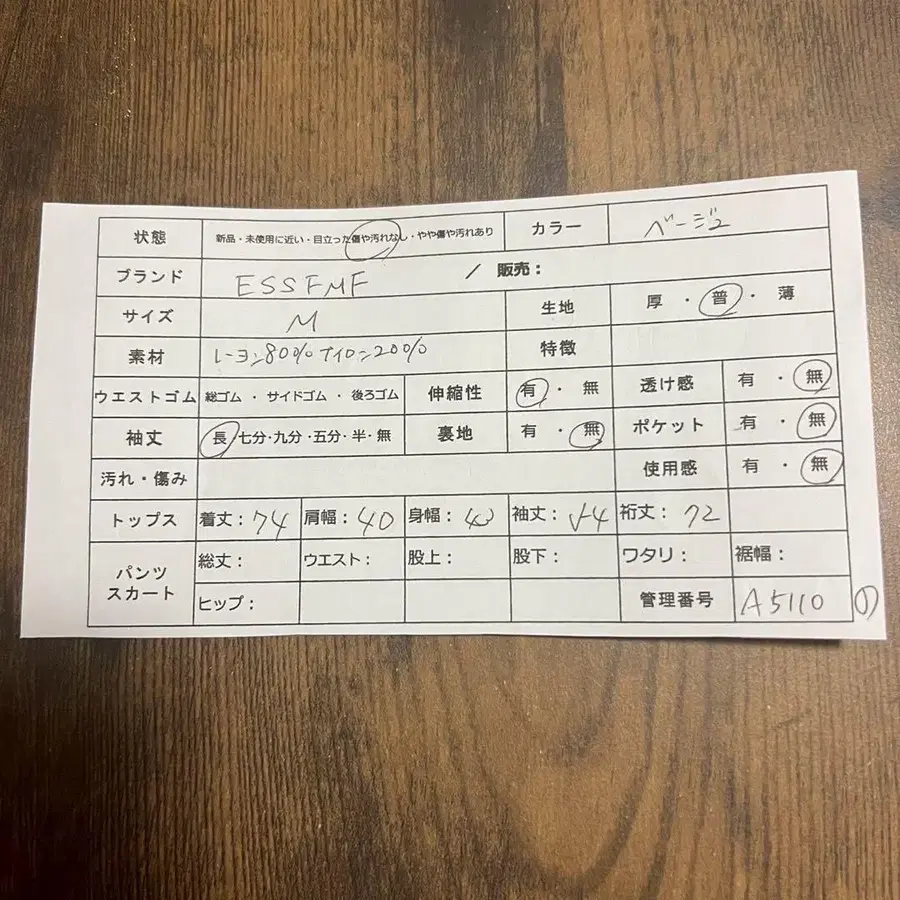 状態 新品・未使用に近い・目立った傷や汚れなし・やや傷や汚れあり カラー ベージュ
ブランド ESSFMF / 販売：
サイズ M 生地 厚・普・薄
素材 レーヨン80% ナイロン20% 特徴
ウエストゴム 総ゴム・サイドゴム・後ろゴム 伸縮性 有・無 透け感 有・無
袖丈 長・七分・九分・五分・半・無 裏地 有・無 ポケット 有・無
汚れ・傷み 使用感 有・無
トップス 着丈：74 肩幅：40 身幅： 袖丈：54 裄丈：72
パンツ スカート 総丈： ウエスト： 股上： 股下： ワタリ： 裾幅：
ヒップ： 管理番号 A5110 の